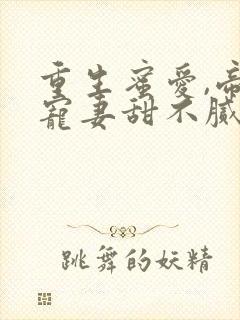 重生蜜爱,帝
寵妻甜不膩
跳舞的妖精